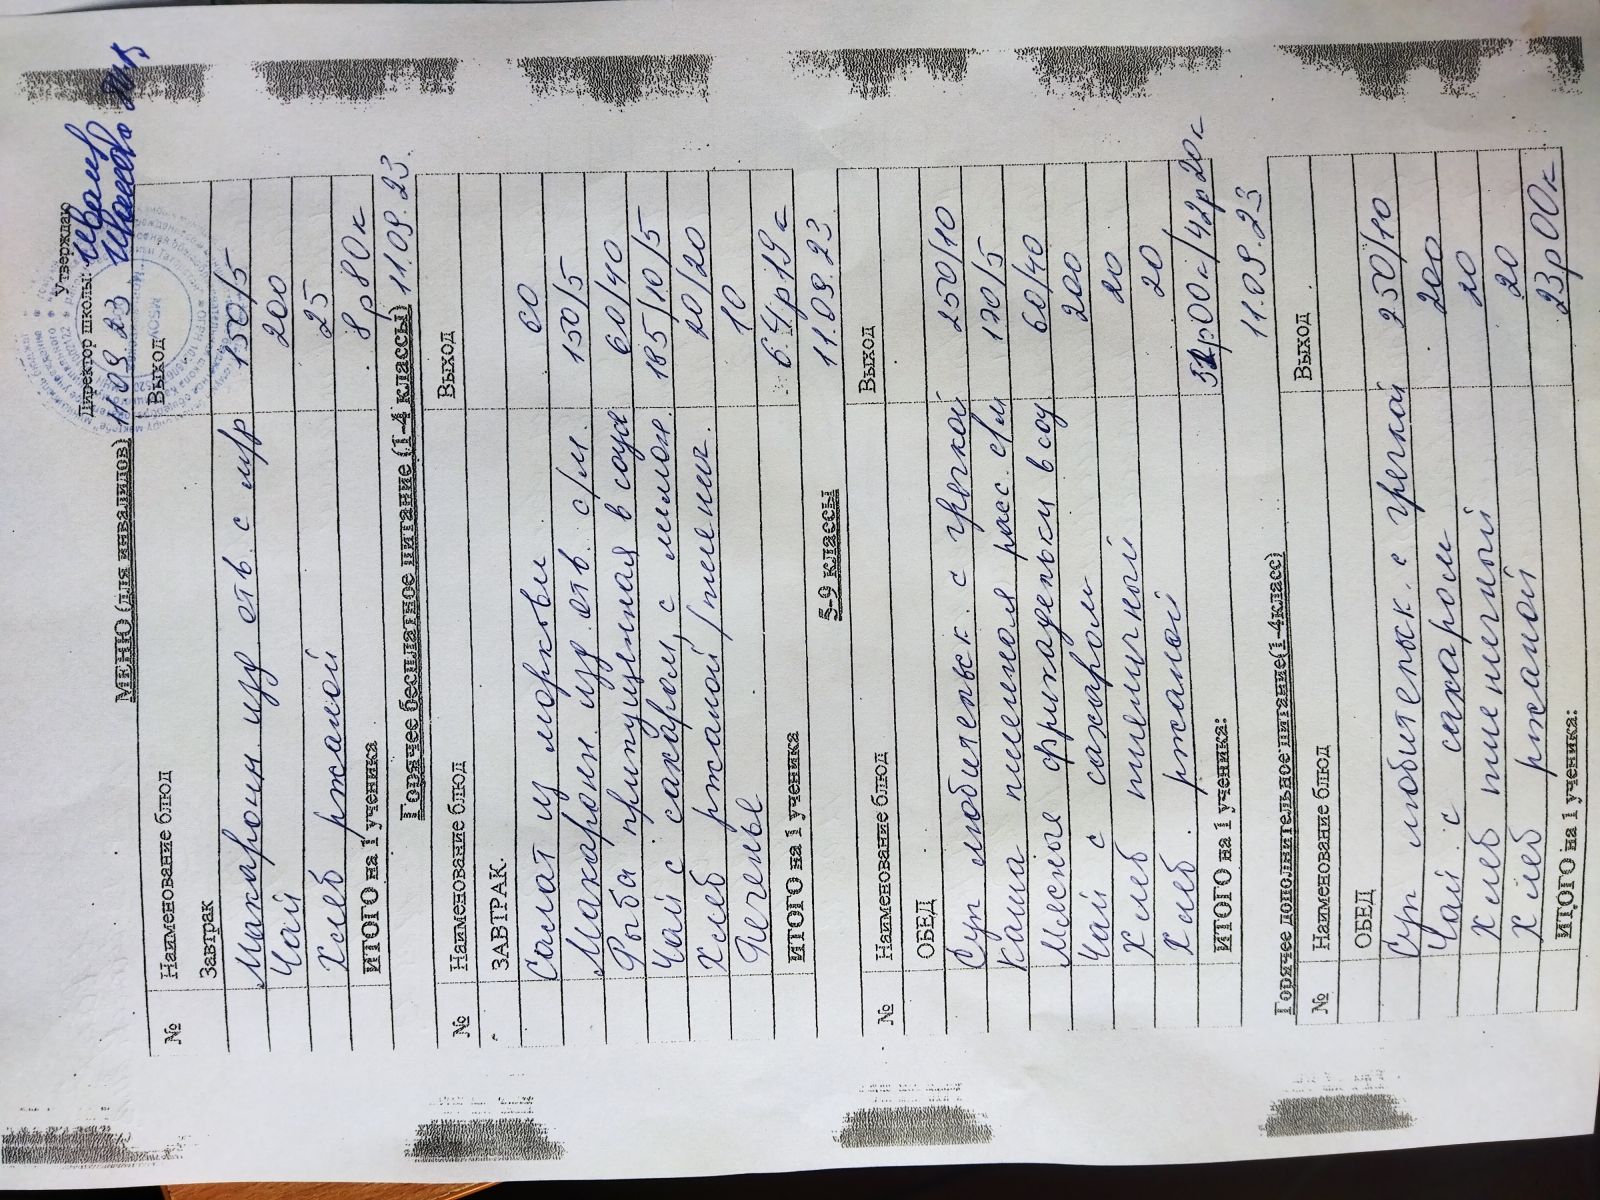 Утверждаю
Директор школы:
11 09 23
МЕНЮ (для инвалидов)
№ Наименование блюд Выход
Завтрак
Макарон. изд отв. с м/р 150/5
Чай 200
Хлеб ржаной 25
ИТОГО на 1 ученика 8р80к
Горячее бесплатное питание (1-4 классы) 11.09.23
№ Наименование блюд Выход
ЗАВТРАК.
Салат из моркови 60
Макарон. изд. отв. с/м. 150/5
Рыба припущенная в соусе 60/40
Чай с сахаром, с лимон. 185/10/5
Хлеб ржаной/пшенич. 20/20
Печенье 10
ИТОГО на 1 ученика 64р19к
11.09.23
5-9 классы
№ Наименование блюд Выход
ОБЕД
Суп любительск. с гречкой 250/10
Каша пшенная расс. с/м 170/5
Мясные фрикадельки в соу 60/40
Чай с сахаром 200
Хлеб пшеничный 20
Хлеб ржаной 20
ИТОГО на 1 ученика: р00к/42р20к
11.09.23
Горячее дополнительное питание(1-4класс)
№ Наименование блюд Выход
ОБЕД
Суп любительск. с гречкой 250/10
Чай с сахаром 200
Хлеб пшеничный 20
Хлеб ржаной 20
ИТОГО на 1 ученика: 23р00к